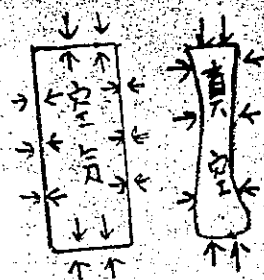 空気
真空